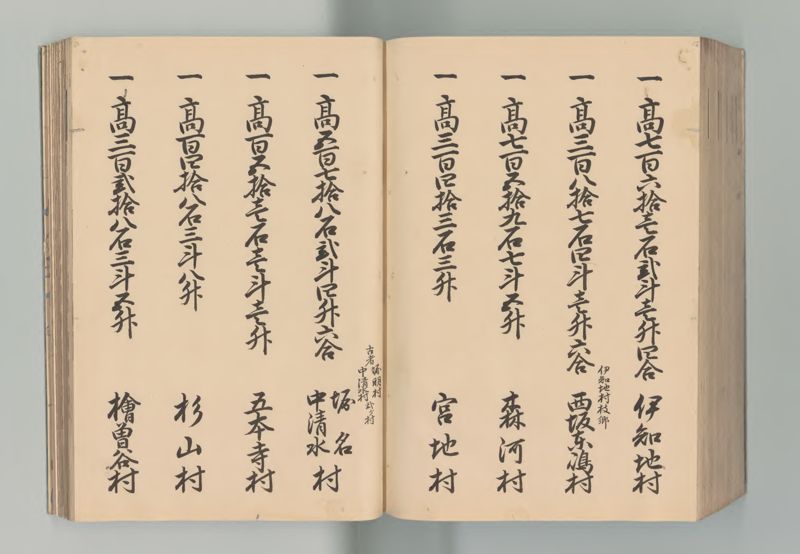 一 高七百六拾壱石弐斗壱升四合 伊知地村
一 高三百八拾七石四斗壱升六合 伊知地村枝郷 西坂東嶋村
一 高七百五拾九石七斗五升 森河村
一 高三百四拾三石三升 宮地村
一 高五百七拾八石弐斗四升六合 古者堀明村 中清水村 弐ケ村 堀名 中清水村
一 高百五拾壱石壱斗壱升 五本寺村
一 高百四拾八石三斗八升 杉山村
一 高三百弐拾八石三斗五升 檜曽谷村